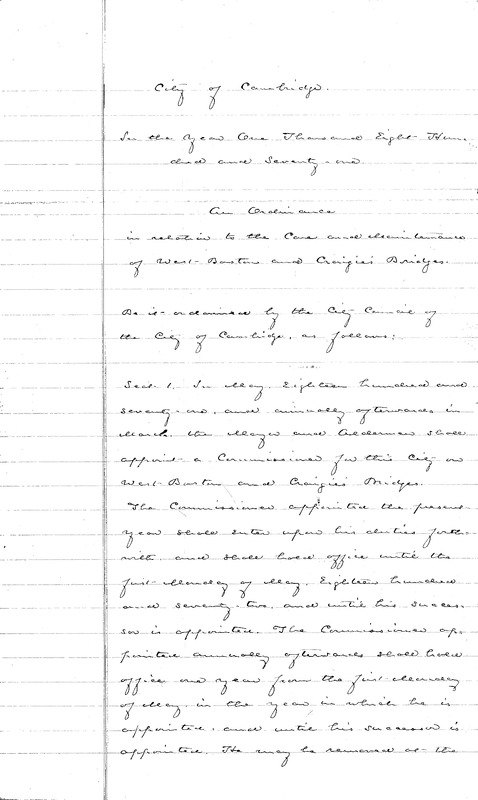 City of Cambridge.
In the Year One Thousand Eight Hun-
dred and Seventy-one
An Ordinance
in relation to the Care and Maintenance
of West-Boston and Craigie's Bridges.
Be it ordained by the City Council of
the City of Cambridge, as follows:
Sect. 1. In May, Eighteen hundred and
seventy-one, and annually afterwards in
March, the Mayor and Aldermen shall
appoint a Commissioner for this City on
West-Boston and Craigie's Bridges.
The Commissioner appointed the present
year shall enter upon his duties forth-
with, and shall hold office until the
first Monday of May, Eighteen hundred
and seventy-two, and until his succes-
sor is appointed. The Commissioner ap-
pointed annually afterwards shall hold
office one year from the first Monday
of May, in the year in which he is
appointed, and until his successor is
appointed. He may be removed at the